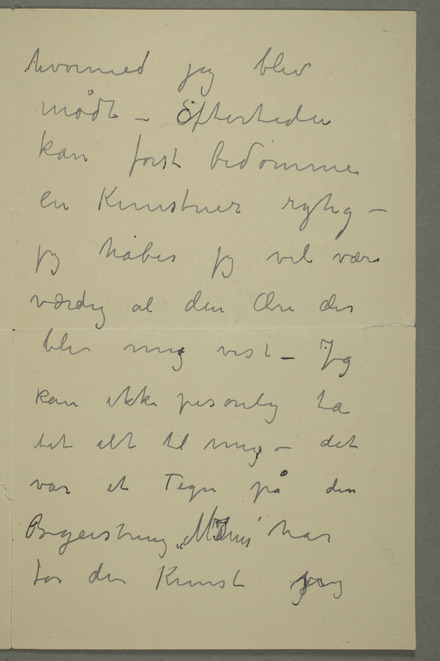 hvormed jeg blev
mødt – Eftertiden
kan først bedømme
en Kunstner rigtig –
jeg håber jeg vil være
værdig al den Ære der
blev mig vist – Jeg
kan ikke pesonlig ta
det alt til mig – det
var et Tegn på den
Begeistring „Mánes" har
for den Kunst jeg